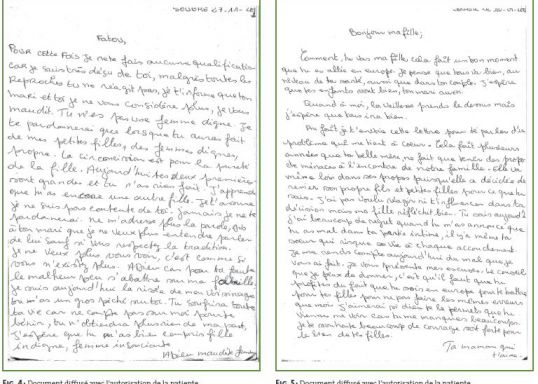 SOUBRE 27-11-
Fatou,
Pour cette fois je ne te fais aucune qualification
car je suis très déçu de toi, malgrés toutes les
Reproches tu ne réagit pas, je t'informe que ton
mari et toi je ne vous considère plus, je vous
maudit. Tu n'es pas une femme digne. Je
te pardonnerai que lorsque tu auras fait
de mes petites filles, des femmes dignes,
propre. La circoncision est pour la pureté
de la fille. Aujourd'hui tes deux premières
sont grandes et tu n'as rien fait. J'apprend
que tu as encore une autre fille. Je t'assure
je ne suis pas contente de toi jamais je ne te
pardonnerai. Ne m'adresse plus la parole, dis
à ton mari que je ne veux plus entendre parler
de lui sauf si vous respectez la tradition.
je ne veux plus vous voir, c'est comme si
vous n'existiez plus. Adieu car pour ta faute
le malheur peu s'abattre sur ma famille
je suis aujourd'hui la risée de mon village
tu m'as un gros péché sur toi. Tu souffrira toute
ta vie car ne compte pas sur moi pour te
bénir, tu n'obtiendra plus rien de ma part,
J'espère que tu m'as bien compris fille
indigne, femme insouciante
Adieu maudite
Bonjour ma fille,
Comment tu vas ma fille cela fait un bon moment
que tu es allée en europe. Je pense que tous va bien, au
niveau de ta santé, ainsi que dans ton couple. J'espère
que tes enfants vont bien, ton mari aussi.
Quand à moi, la vieillesse prends le dessus mais
j'espère que tous ira bien.
En fait je t'envoie cette lettre pour te parler d'un
problème qui me tient à cœur. Cela fait plusieurs
années que ta belle mère ne fait que tenir des propos
de menaces à l'encontre de notre famille. Elle va
même loin dans ses propos puisqu'elle a décidée de
renier son propre fils et petites filles pour ce que tu
sais. J'ai pas voulu réagir ni t'influencer dans ta
décision mais ma fille réfléchit bien. Tu sais aujourd'h
j'ai beaucoup de regret quand tu m'as annoncé que
tu as mal dans ta partie intime, il y a même ta
sœur qui risque sa vie à chaque accouchement
Je me rends compte aujourd'hui du mal que je
vous ai fait. Je vous présente mes excuses. Le conseil
que je peux te donner, c'est qu'il faut que tu
profites du fait que tu sois en europe pour te battre
pour tes filles pour ne pas faire les mêmes erreurs
que moi j'aimerai si dieu le permets que tu
viennes me voir car tu me manques beaucoup.
Je te souhaite beaucoup de courage soit forte pour
le bien de tes filles.
Ta maman qui
t'aime.
FIG. 4: Document diffusé avec l'autorisation de la patiente.
FIG. 5: Document diffusé avec l'autorisation de la patiente.